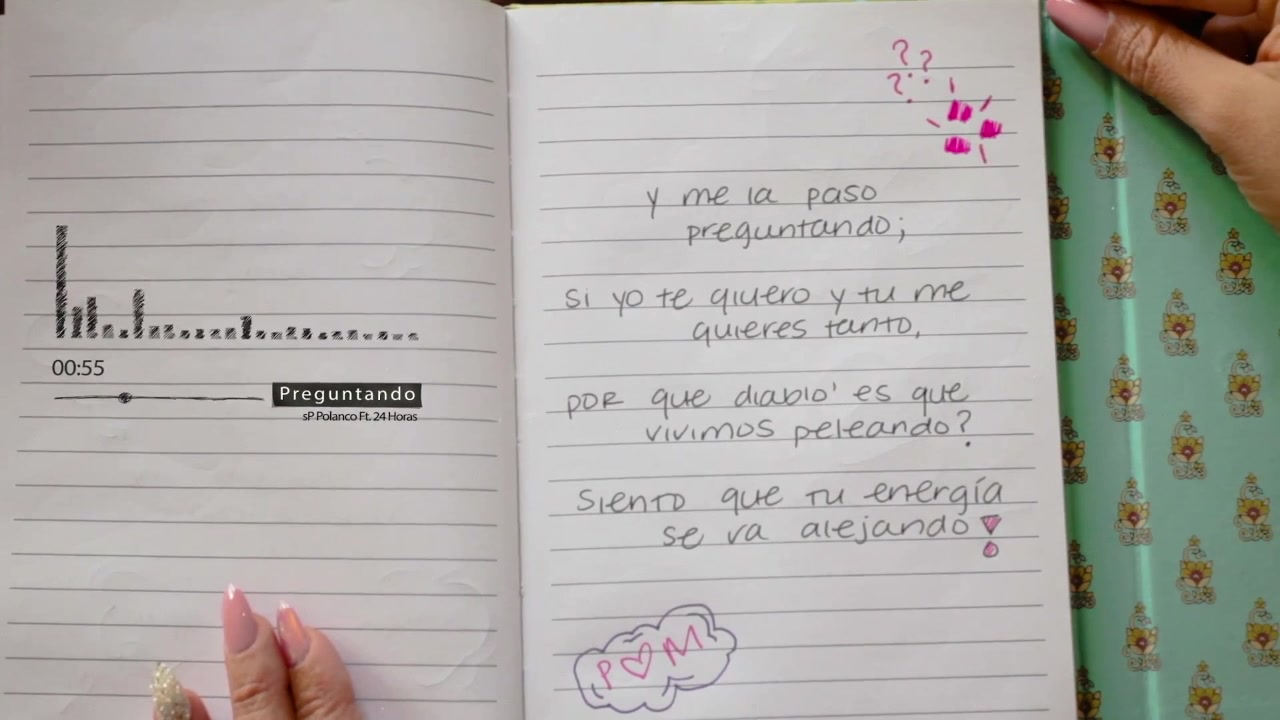 00:55
Preguntando
sP Polanco Ft. 24 Horas
? ?
?
y me la paso
preguntando;
si yo te quiero y tu me
quieres tanto,
por que diablo' es que
vivimos peleando?
siento que tu energía
se va alejando!
P♡M